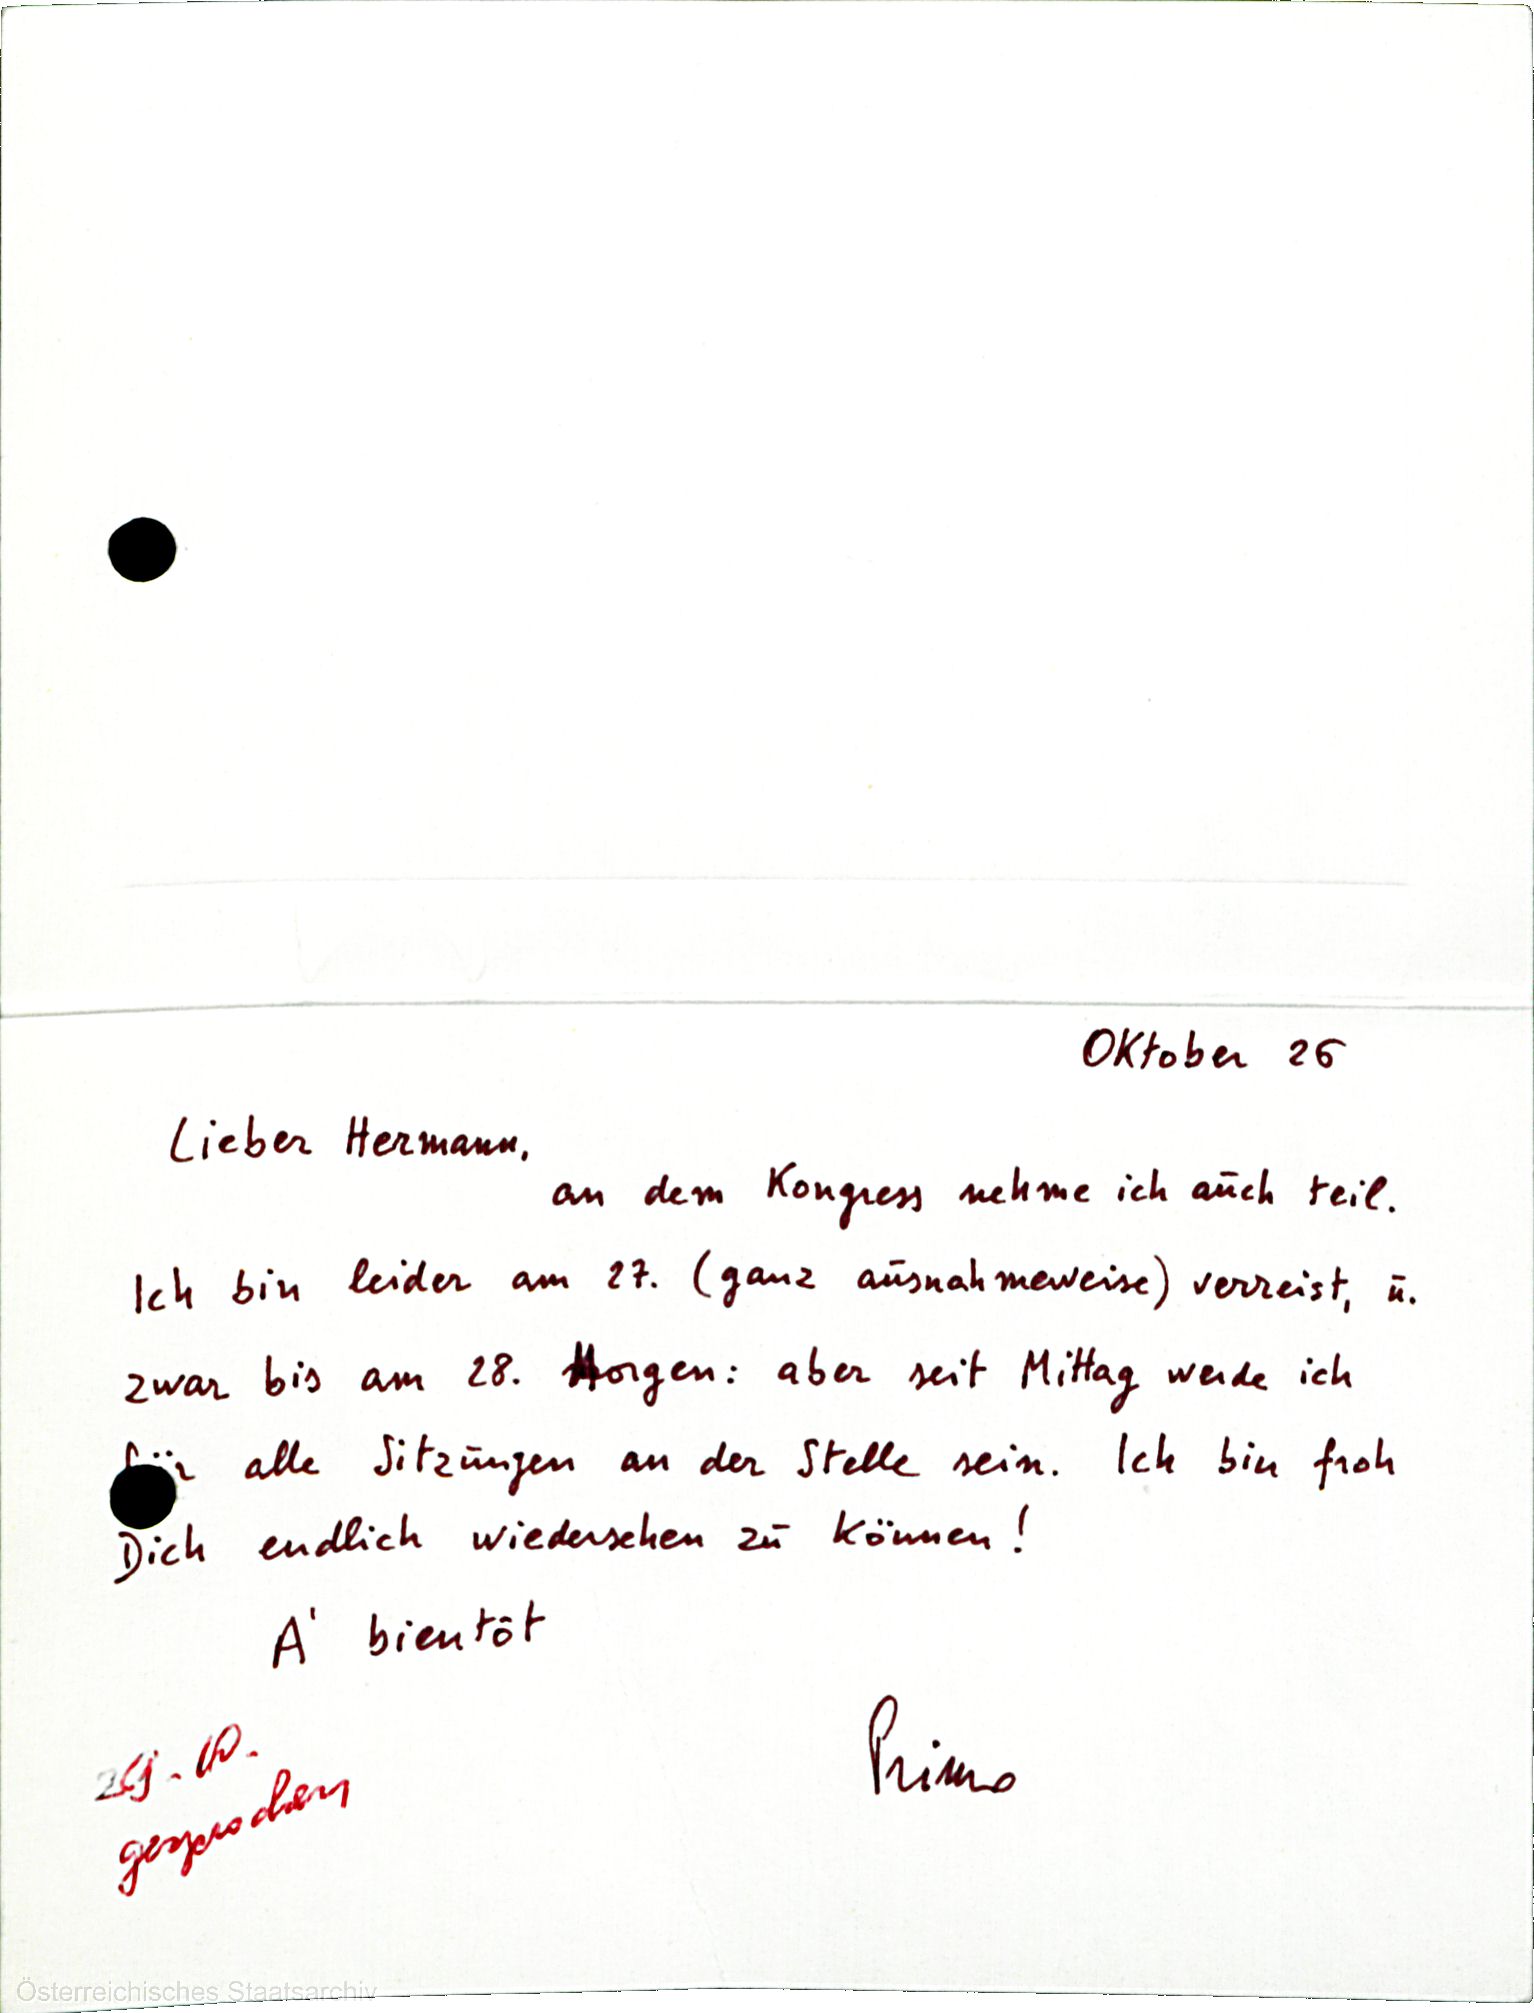 Oktober 26
Lieber Hermann,
an dem Kongress nehme ich aūch teil.
Ich bin leider am 27. (ganz aūsnahmeweise) verreist, ū.
zwar bis am 28. Morgen: aber seit Mittag werde ich
für alle Sitzūngen an der Stelle sein. Ich bin froh
Dich endlich wiedersehen zū können!
A' bientôt
Primo
29.10.
gesprochen
Österreichisches Staatsarchiv